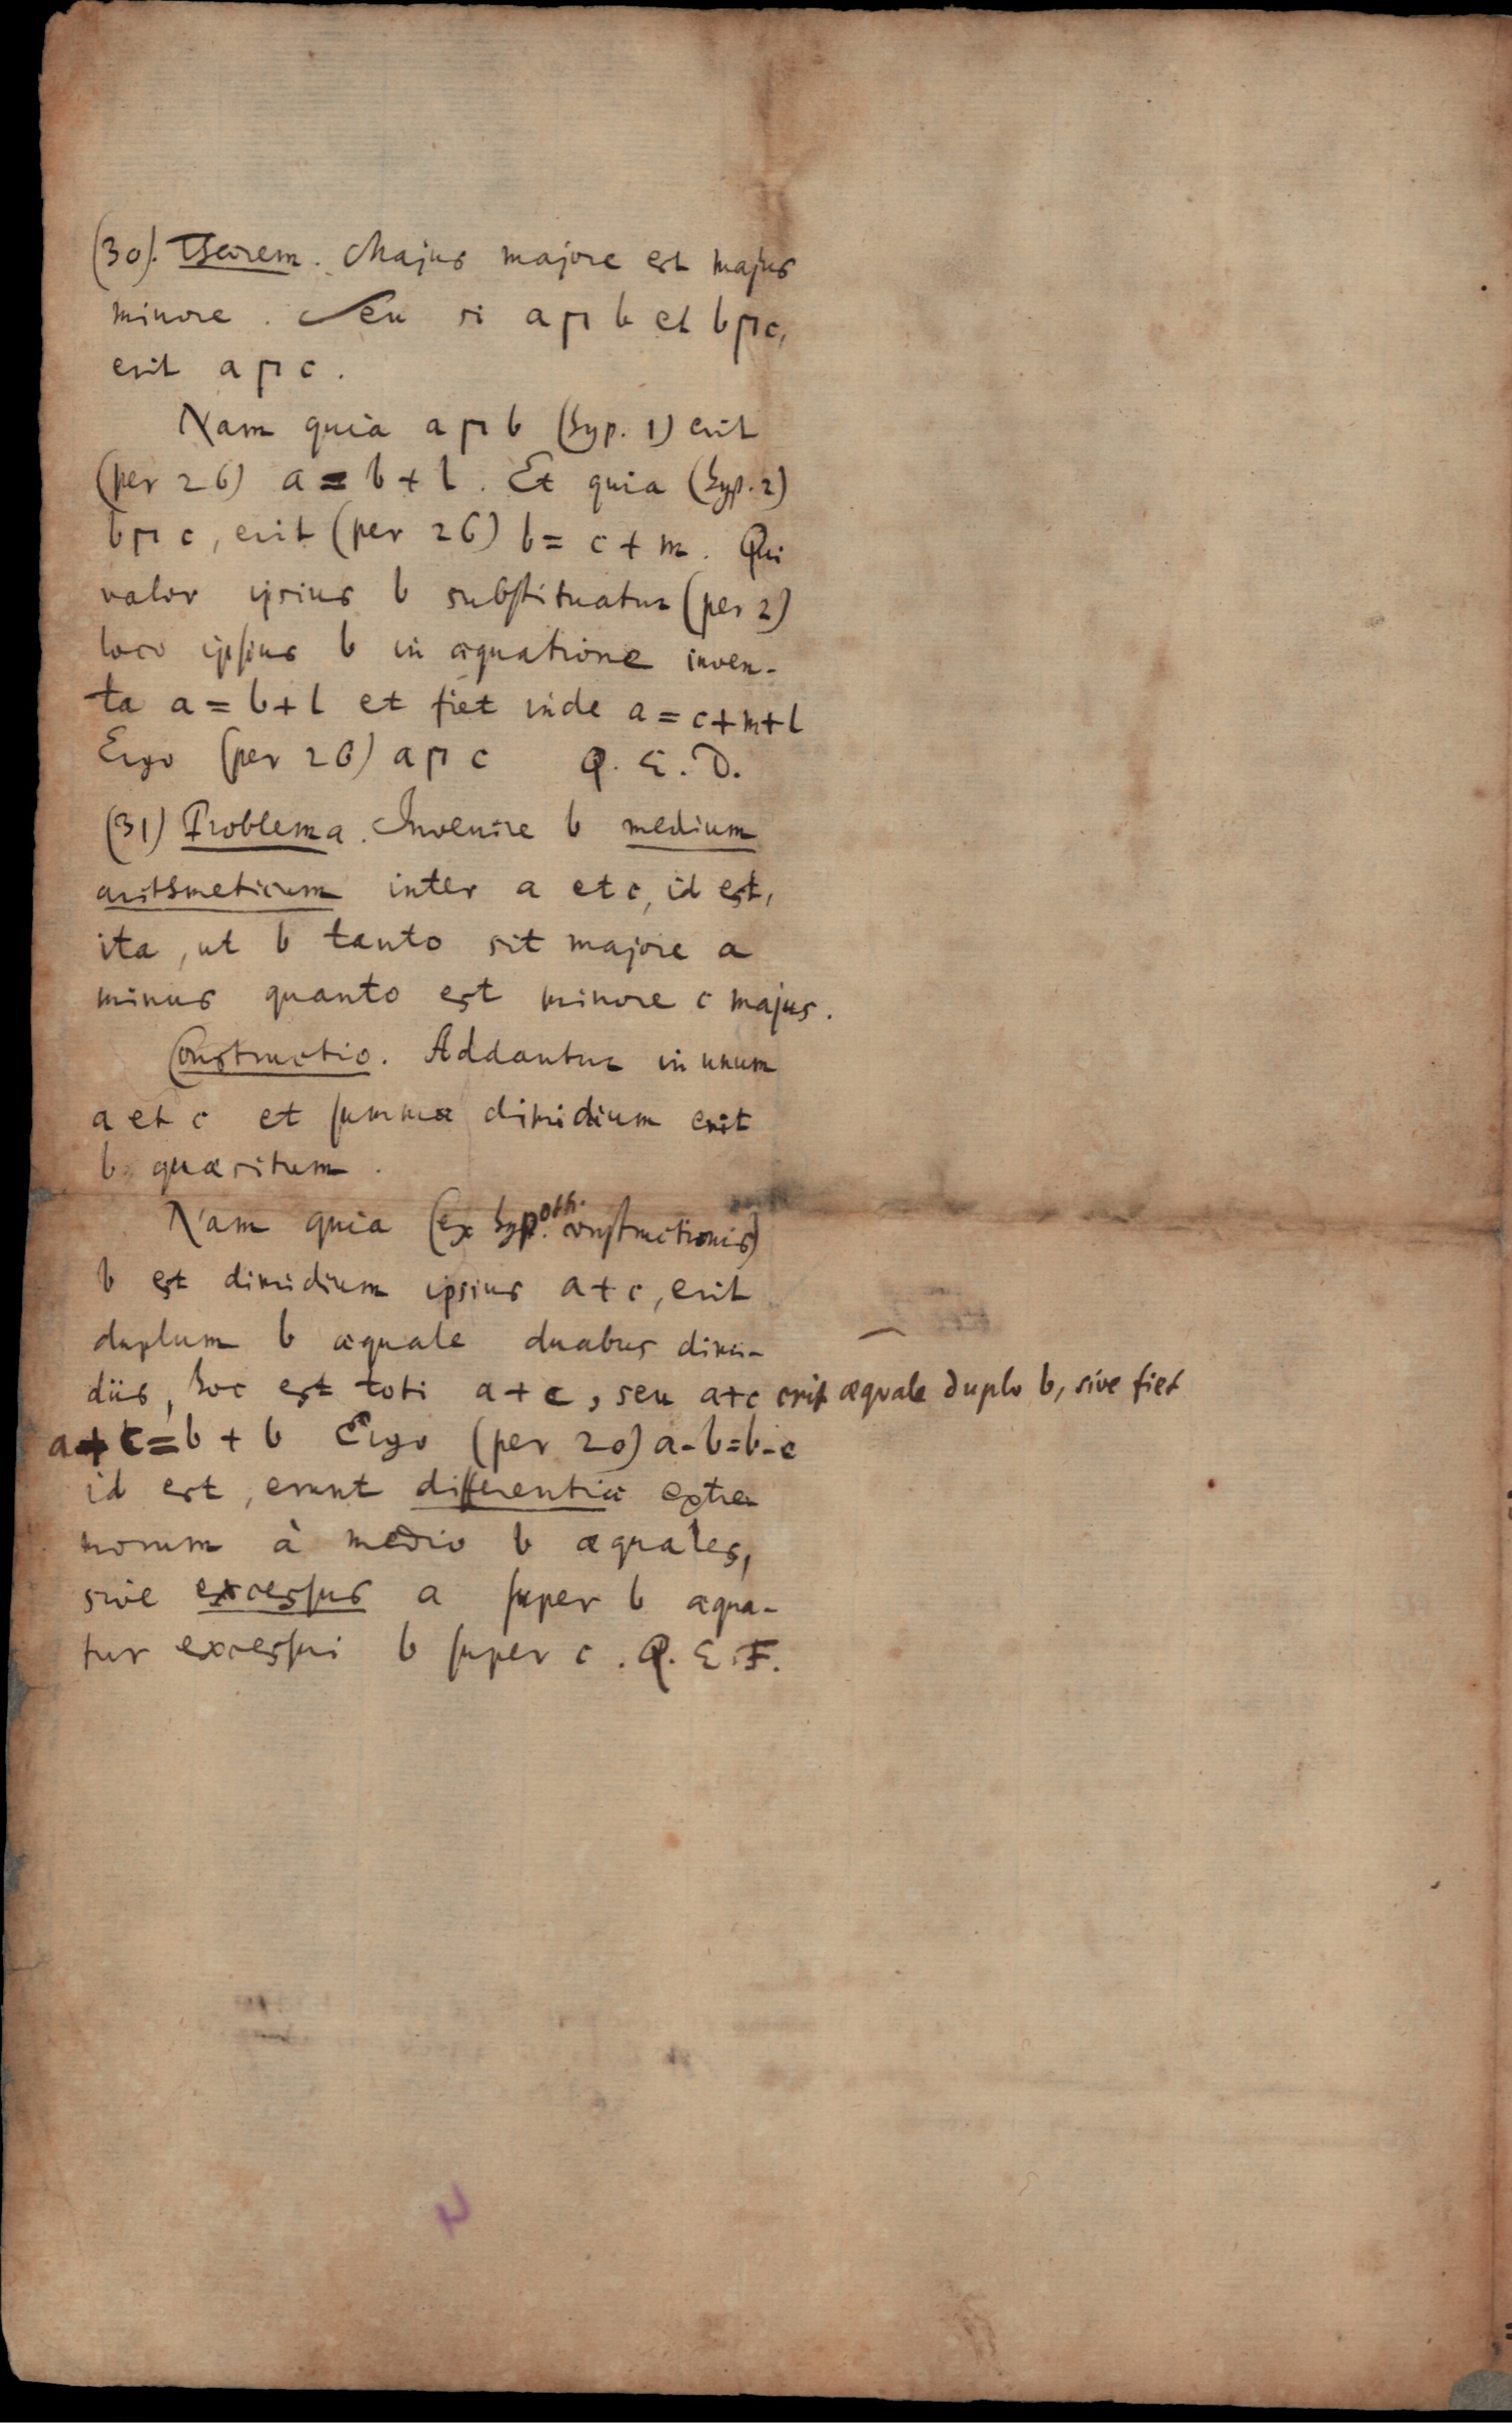 (30). Theorem. Majus majore est majus
minore. Seu si a ┌┐ b et b ┌┐ c,
erit a ┌┐ c.
Nam quia a ┌┐ b (hyp. 1) erit
(per 26) a = b + l. Et quia (hyp. 2)
b ┌┐ c, erit (per 26) b = c + m. Qui
valor ipsius b substituatur (per 2)
loco ipsius b in æquatione inven-
ta a = b + l et fiet inde a = c + m + l
Ergo (per 26) a ┌┐ c Q. E. D.
(31) Problema. Invenire b medium
arithmeticum inter a et c, id est,
ita, ut b tanto sit majore a
minus quanto est minore c majus.
Constructio. Addantur in unum
a et c et summæ dimidium erit
b quæsitum.
Nam quia (ex hypoth. constructionis)
b est dimidium ipsius a + c, erit
duplum b æquale duabus dimi-
diis, hoc est toti a + c, seu a+c erit æquale duplo b, sive fiet
a + c = b + b Ergo (per 20) a - b = b - c
id est, erunt differentiæ extre
morum à medio b æquales,
sive excessus a super b æqua-
tur excessui b super c. Q. E. F.